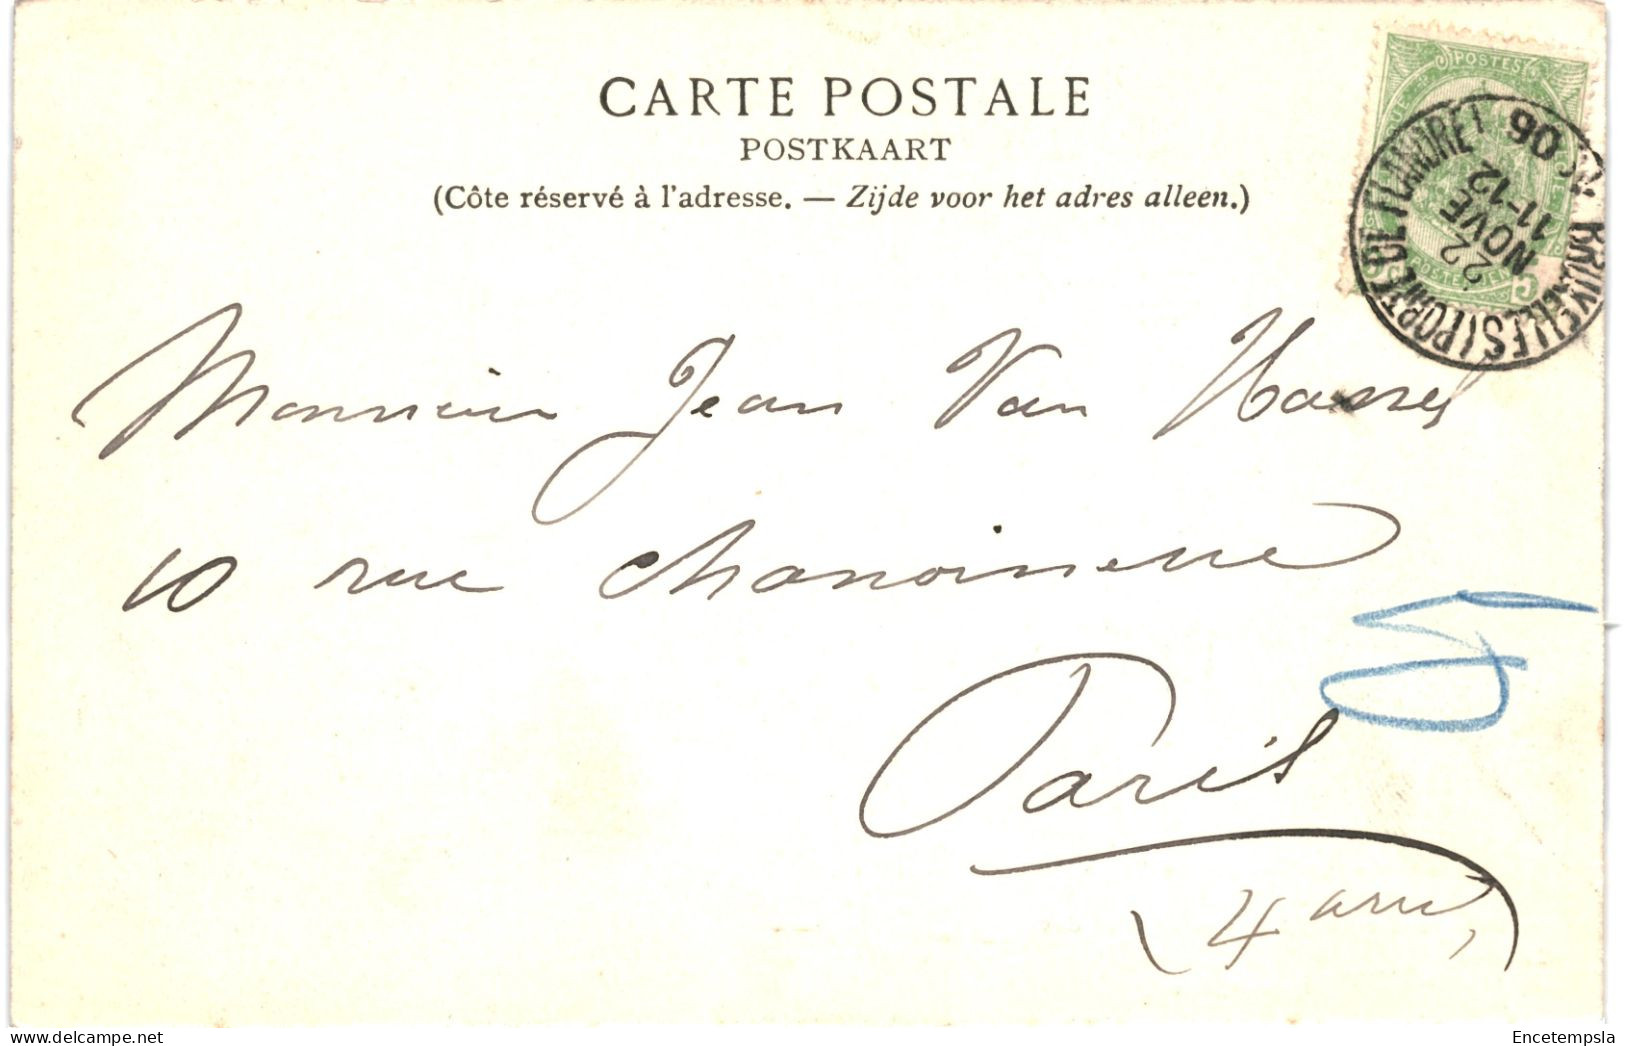 CARTE POSTALE
POSTKAART
(Côte réservé à l'adresse. — Zijde voor het adres alleen.)
POSTES
5
BRUXELLES (PORTE DE FLANDRE)
22
NOVE
11-12
06
Monsieur Jean Van Hassel
10 rue Chanoinesse
Paris
5
(4 arr)
Encetempsla